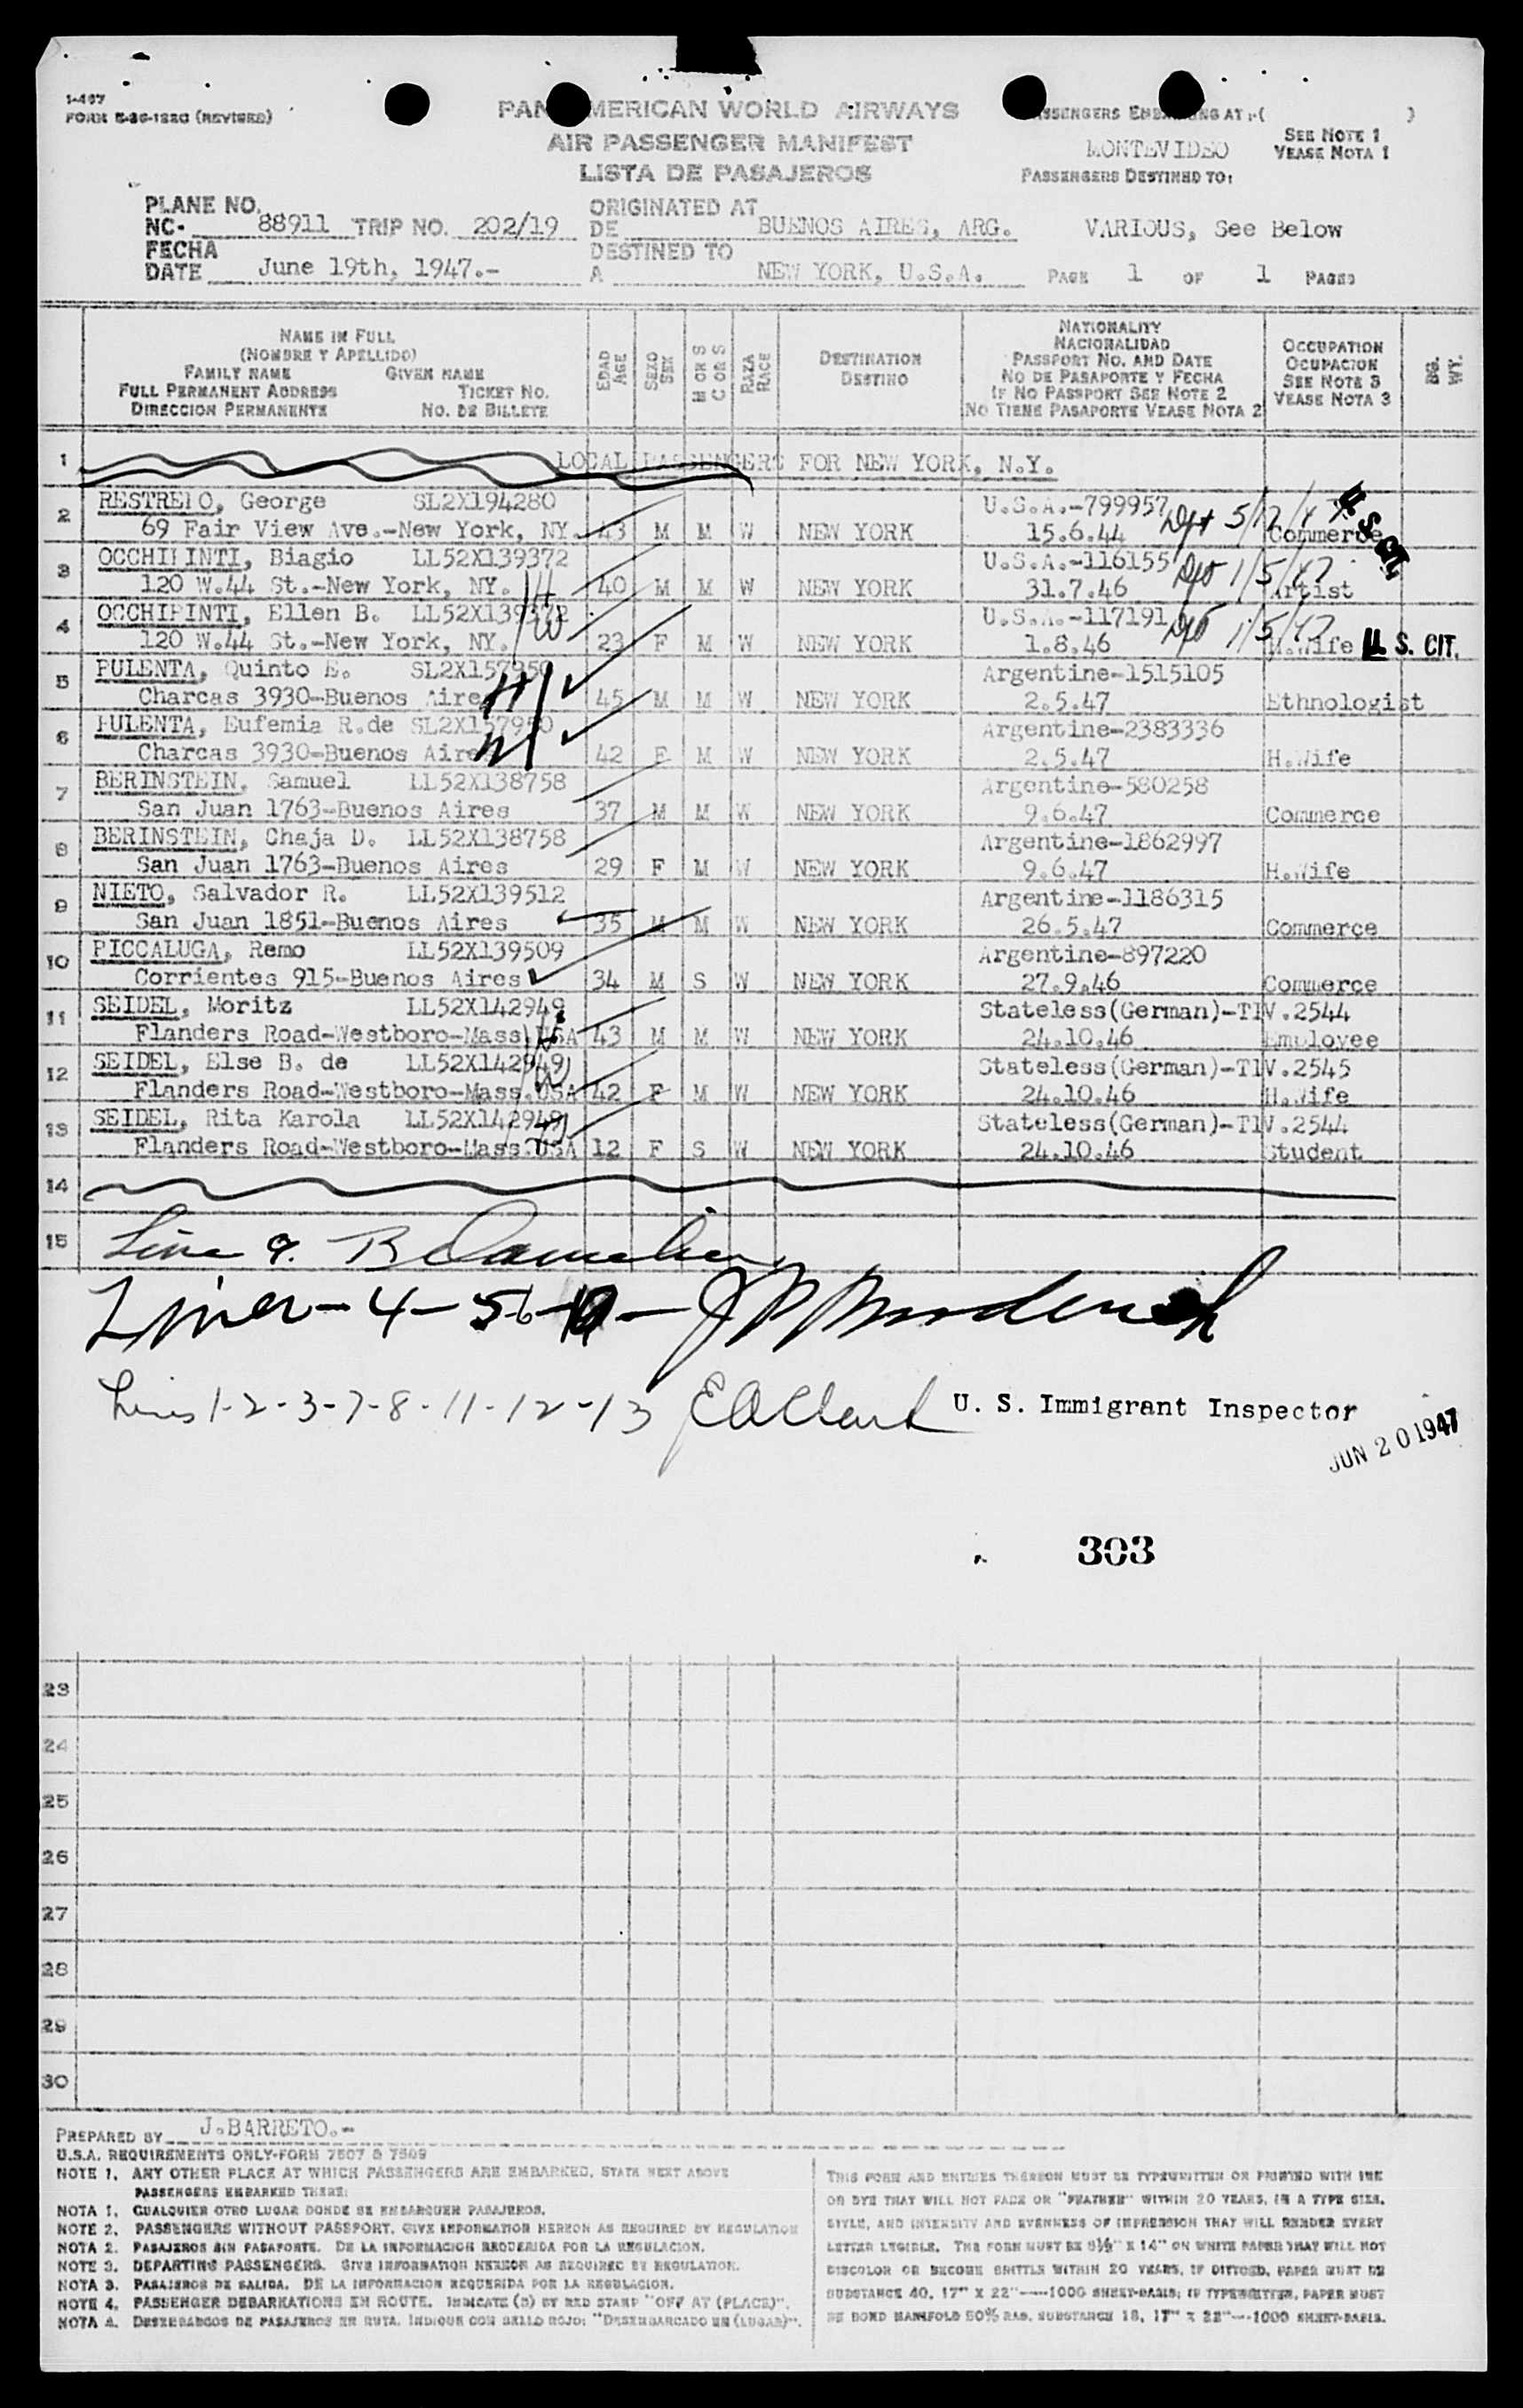 1-467
FORM E-36-1220 (REVISED)
PAN AMERICAN WORLD AIRWAYS
AIR PASSENGER MANIFEST
LISTA DE PASAJEROS
PASSENGERS EMBARKING AT :-( )
MONTEVIDEO
SEE NOTE 1
VEASE NOTA 1
PASSENGERS DESTINED TO:
VARIOUS, See Below
PLANE NO.
NC- 88911 TRIP NO. 202/19
FECHA
DATE June 19th, 1947.-
ORIGINATED AT
DE BUENOS AIRES, ARG.
DESTINED TO
A NEW YORK, U.S.A.
PAGE 1 OF 1 PAGES
NAME IN FULL
(NOMBRE Y APELLIDO)
FAMILY NAME GIVEN NAME
FULL PERMANENT ADDRESS TICKET NO.
DIRECCION PERMANENTE NO. DE BILLETE
EDAD AGE
SEXO SEX
M OR S
C OR S
RAZA RACE
DESTINATION
DESTINO
NATIONALITY
NACIONALIDAD
PASSPORT NO. AND DATE
NO DE PASAPORTE Y FECHA
IF NO PASSPORT SEE NOTE 2
NO TIENE PASAPORTE VEASE NOTA 2
OCCUPATION
OCUPACION
SEE NOTE 3
VEASE NOTA 3
BG. WT.
1 LOCAL PASSENGERS FOR NEW YORK, N.Y.
2 RESTREPO, George SL2X194280 U.S.A.-799957
69 Fair View Ave.-New York, NY. 43 M M W NEW YORK 15.6.44 Commerce
Dept 5/12/47 U.S. Cit.
3 OCCHIPINTI, Biagio LL52X139372 U.S.A.-116155
120 W.44 St.-New York, NY. 40 M M W NEW YORK 31.7.46 Artist
1/5/47
4 OCCHIPINTI, Ellen B. LL52X139372 U.S.A.-117191
120 W.44 St.-New York, NY. 23 F M W NEW YORK 1.8.46 H.Wife U.S. CIT.
1/5/47
5 PULENTA, Quinto E. SL2X157950 Argentine-1515105
Charcas 3930-Buenos Aires 45 M M W NEW YORK 2.5.47 Ethnologist
6 PULENTA, Eufemia R.de SL2X157950 Argentine-2383336
Charcas 3930-Buenos Aires 42 F M W NEW YORK 2.5.47 H.Wife
7 BERINSTEIN, Samuel LL52X138758 Argentine-580258
San Juan 1763-Buenos Aires 37 M M W NEW YORK 9.6.47 Commerce
8 BERINSTEIN, Chaja D. LL52X138758 Argentine-1862997
San Juan 1763-Buenos Aires 29 F M W NEW YORK 9.6.47 H.Wife
9 NIETO, Salvador R. LL52X139512 Argentine-1186315
San Juan 1851-Buenos Aires 35 M M W NEW YORK 26.5.47 Commerce
10 PICCALUGA, Remo LL52X139509 Argentine-897220
Corrientes 915-Buenos Aires 34 M S W NEW YORK 27.9.46 Commerce
11 SEIDEL, Moritz LL52X142949 Stateless(German)-TIV.2544
Flanders Road-Westboro-Mass.USA 43 M M W NEW YORK 24.10.46 Employee
12 SEIDEL, Else B. de LL52X142949 Stateless(German)-TIV.2545
Flanders Road-Westboro-Mass.USA 42 F M W NEW YORK 24.10.46 H.Wife
13 SEIDEL, Rita Karola LL52X142949 Stateless(German)-TIV.2544
Flanders Road-Westboro-Mass.USA 12 F S W NEW YORK 24.10.46 Student
14
15 Line 9.
Lines - 4 - 5 - 6 - 10 -
Lines 1-2-3-7-8-11-12-13 E A Clark U. S. Immigrant Inspector
JUN 20 1947
303
23
24
25
26
27
28
29
30
PREPARED BY J.BARRETO.-
U.S.A. REQUIREMENTS ONLY-FORM 7507 & 7509
NOTE 1. ANY OTHER PLACE AT WHICH PASSENGERS ARE EMBARKED, STATE NEXT ABOVE
PASSENGERS EMBARKED THERE:
NOTA 1. CUALQUIER OTRO LUGAR DONDE SE EMBARQUEN PASAJEROS.
NOTE 2. PASSENGERS WITHOUT PASSPORT. GIVE INFORMATION HEREON AS REQUIRED BY REGULATION
NOTA 2. PASAJEROS SIN PASAPORTE. DE LA INFORMACION REQUERIDA POR LA REGULACION.
NOTE 3. DEPARTING PASSENGERS. GIVE INFORMATION HEREON AS REQUIRED BY REGULATION.
NOTA 3. PASAJEROS DE SALIDA. DE LA INFORMACION REQUERIDA POR LA REGULACION.
NOTE 4. PASSENGER DEBARKATIONS EN ROUTE. INDICATE (S) BY RED STAMP "OFF AT (PLACE)".
NOTA 4. DESEMBARCOS DE PASAJEROS EN RUTA. INDIQUE CON SELLO ROJO: "DESEMBARCADO EN (LUGAR)".
THIS FORM AND ENTRIES THEREON MUST BE TYPEWRITTEN OR PRINTED WITH INK
OR DYE THAT WILL NOT FADE OR "FEATHER" WITHIN 20 YEARS, IN A TYPE SIZE,
STYLE, AND INTENSITY AND EVENNESS OF IMPRESSION THAT WILL RENDER EVERY
LETTER LEGIBLE. THE FORM MUST BE 8½" X 14" ON WHITE PAPER THAT WILL NOT
DISCOLOR OR BECOME BRITTLE WITHIN 20 YEARS, IF DITTOED, PAPER MUST BE
SUBSTANCE 40, 17" X 22"----1000 SHEET-BASIS; IF TYPEWRITTEN, PAPER MUST
BE BOND MANIFOLD 50% RAG, SUBSTANCE 18, 17" X 22"---1000 SHEET-BASIS.